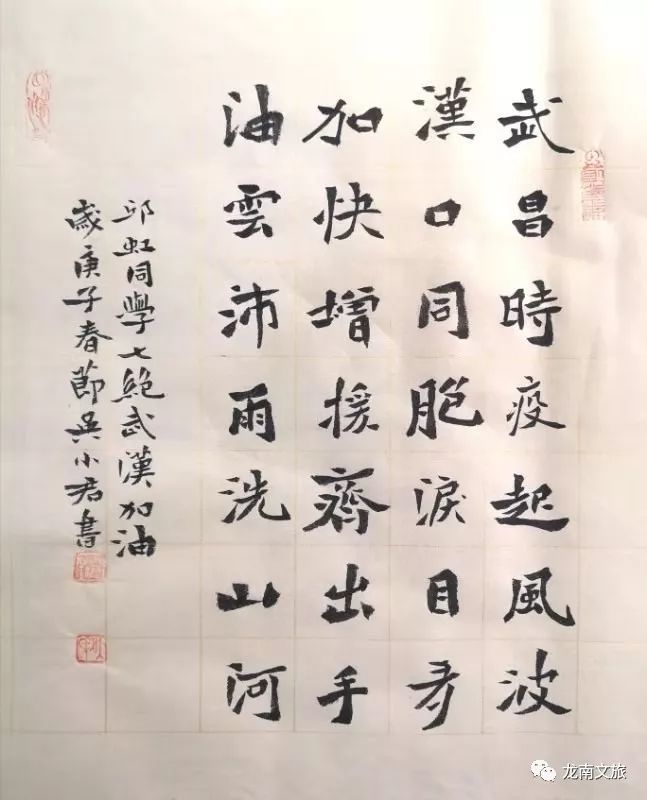 武昌時疫起風波
漢口同胞淚目多
加快增援齊出手
油雲沛雨洗山河
邱虹同學七絕武漢加油
歲庚子春節吳小君書
龙南文旅